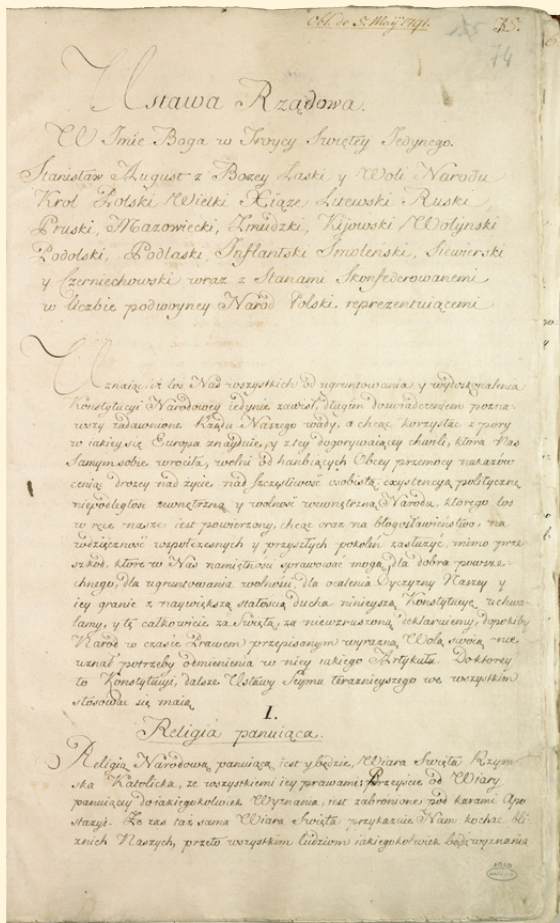 Obl. de 5. Maij 1791.
75.
74
Ustawa Rządowa.
W Imie Boga w Troycy Swiętey Jedynego.
Stanisław August z Bozey Łaski y Woli Narodu
Krol Polski Wielki Xiąze Litewski Ruski
Pruski, Mazowiecki, Zmudzki, Kijowski Wołynski
Podolski, Podlaski, Inflantski Smolenski, Siewierski
y Czerniechowski wraz z Stanami Skonfederowanemi
w liczbie podwoyney Naród Polski reprezentuiącemi
Uznaiąc, iż los Nas wszystkich od ugruntowania y wydoskonalenia
Konstytucyi Narodowey iedynie zawisł, długiem doswiadczeniem pozna-
wszy zadawnione Rządu Naszego wady, a chcąc korzystać z pory
w iakiey się Europa znayduie, y z tey dogorywaiącey chwili, która Nas
samym sobie wrociła, wolni od hanbiących Obcey przemocy nakazów
ceniąc drozey nad zycie, nad szczęsliwość osobistą, exystencyą polityczną
niepodległosć zewnętrzną y wolność wewnętrzną Narodu, ktorego los
w ręce nasze iest powierzony, chcąc oraz na błogosławieństwo, na
wdzięczność wspołczesnych y przyszłych pokoleń zasłużyć, mimo prze-
szkod, które w Nas namiętnosci sprawować mogą, dla dobra powsze-
chnego, dla ugruntowania wolnosci, dla ocalenia Oyczyzny Naszey y
iey granic z naywiększą stałoscią ducha ninieyszą Konstytucyę uchwa-
lamy, y tę całkowicie za Swiętą, za niewzruszoną deklaruiemy, dopokiby
Naród w czasie Prawem przepisanym wyrazną Wolą swoią nie
uznał potrzeby odmienienia w niey iakiego Artykułu. Do ktorey
to Konstytucyi, dalsze Ustawy Seymu teraznieyszego we wszystkim
stosować się maią
I.
Religia panuiąca.
Religią Narodową panuiącą iest y będzie, Wiara Swięta Rzym-
ska Katolicka, ze wszystkiemi iey prawami; Przeyście od Wiary
panuiącey do iakiegokolwiek Wyznania, iest zabronione pod karami Apo
stazyi. Ze zas taż sama Wiara Swięta przykazuie Nam kochać bli
znich Naszych, przeto wszystkim ludziom iakiegokolwiek bądź wyznania